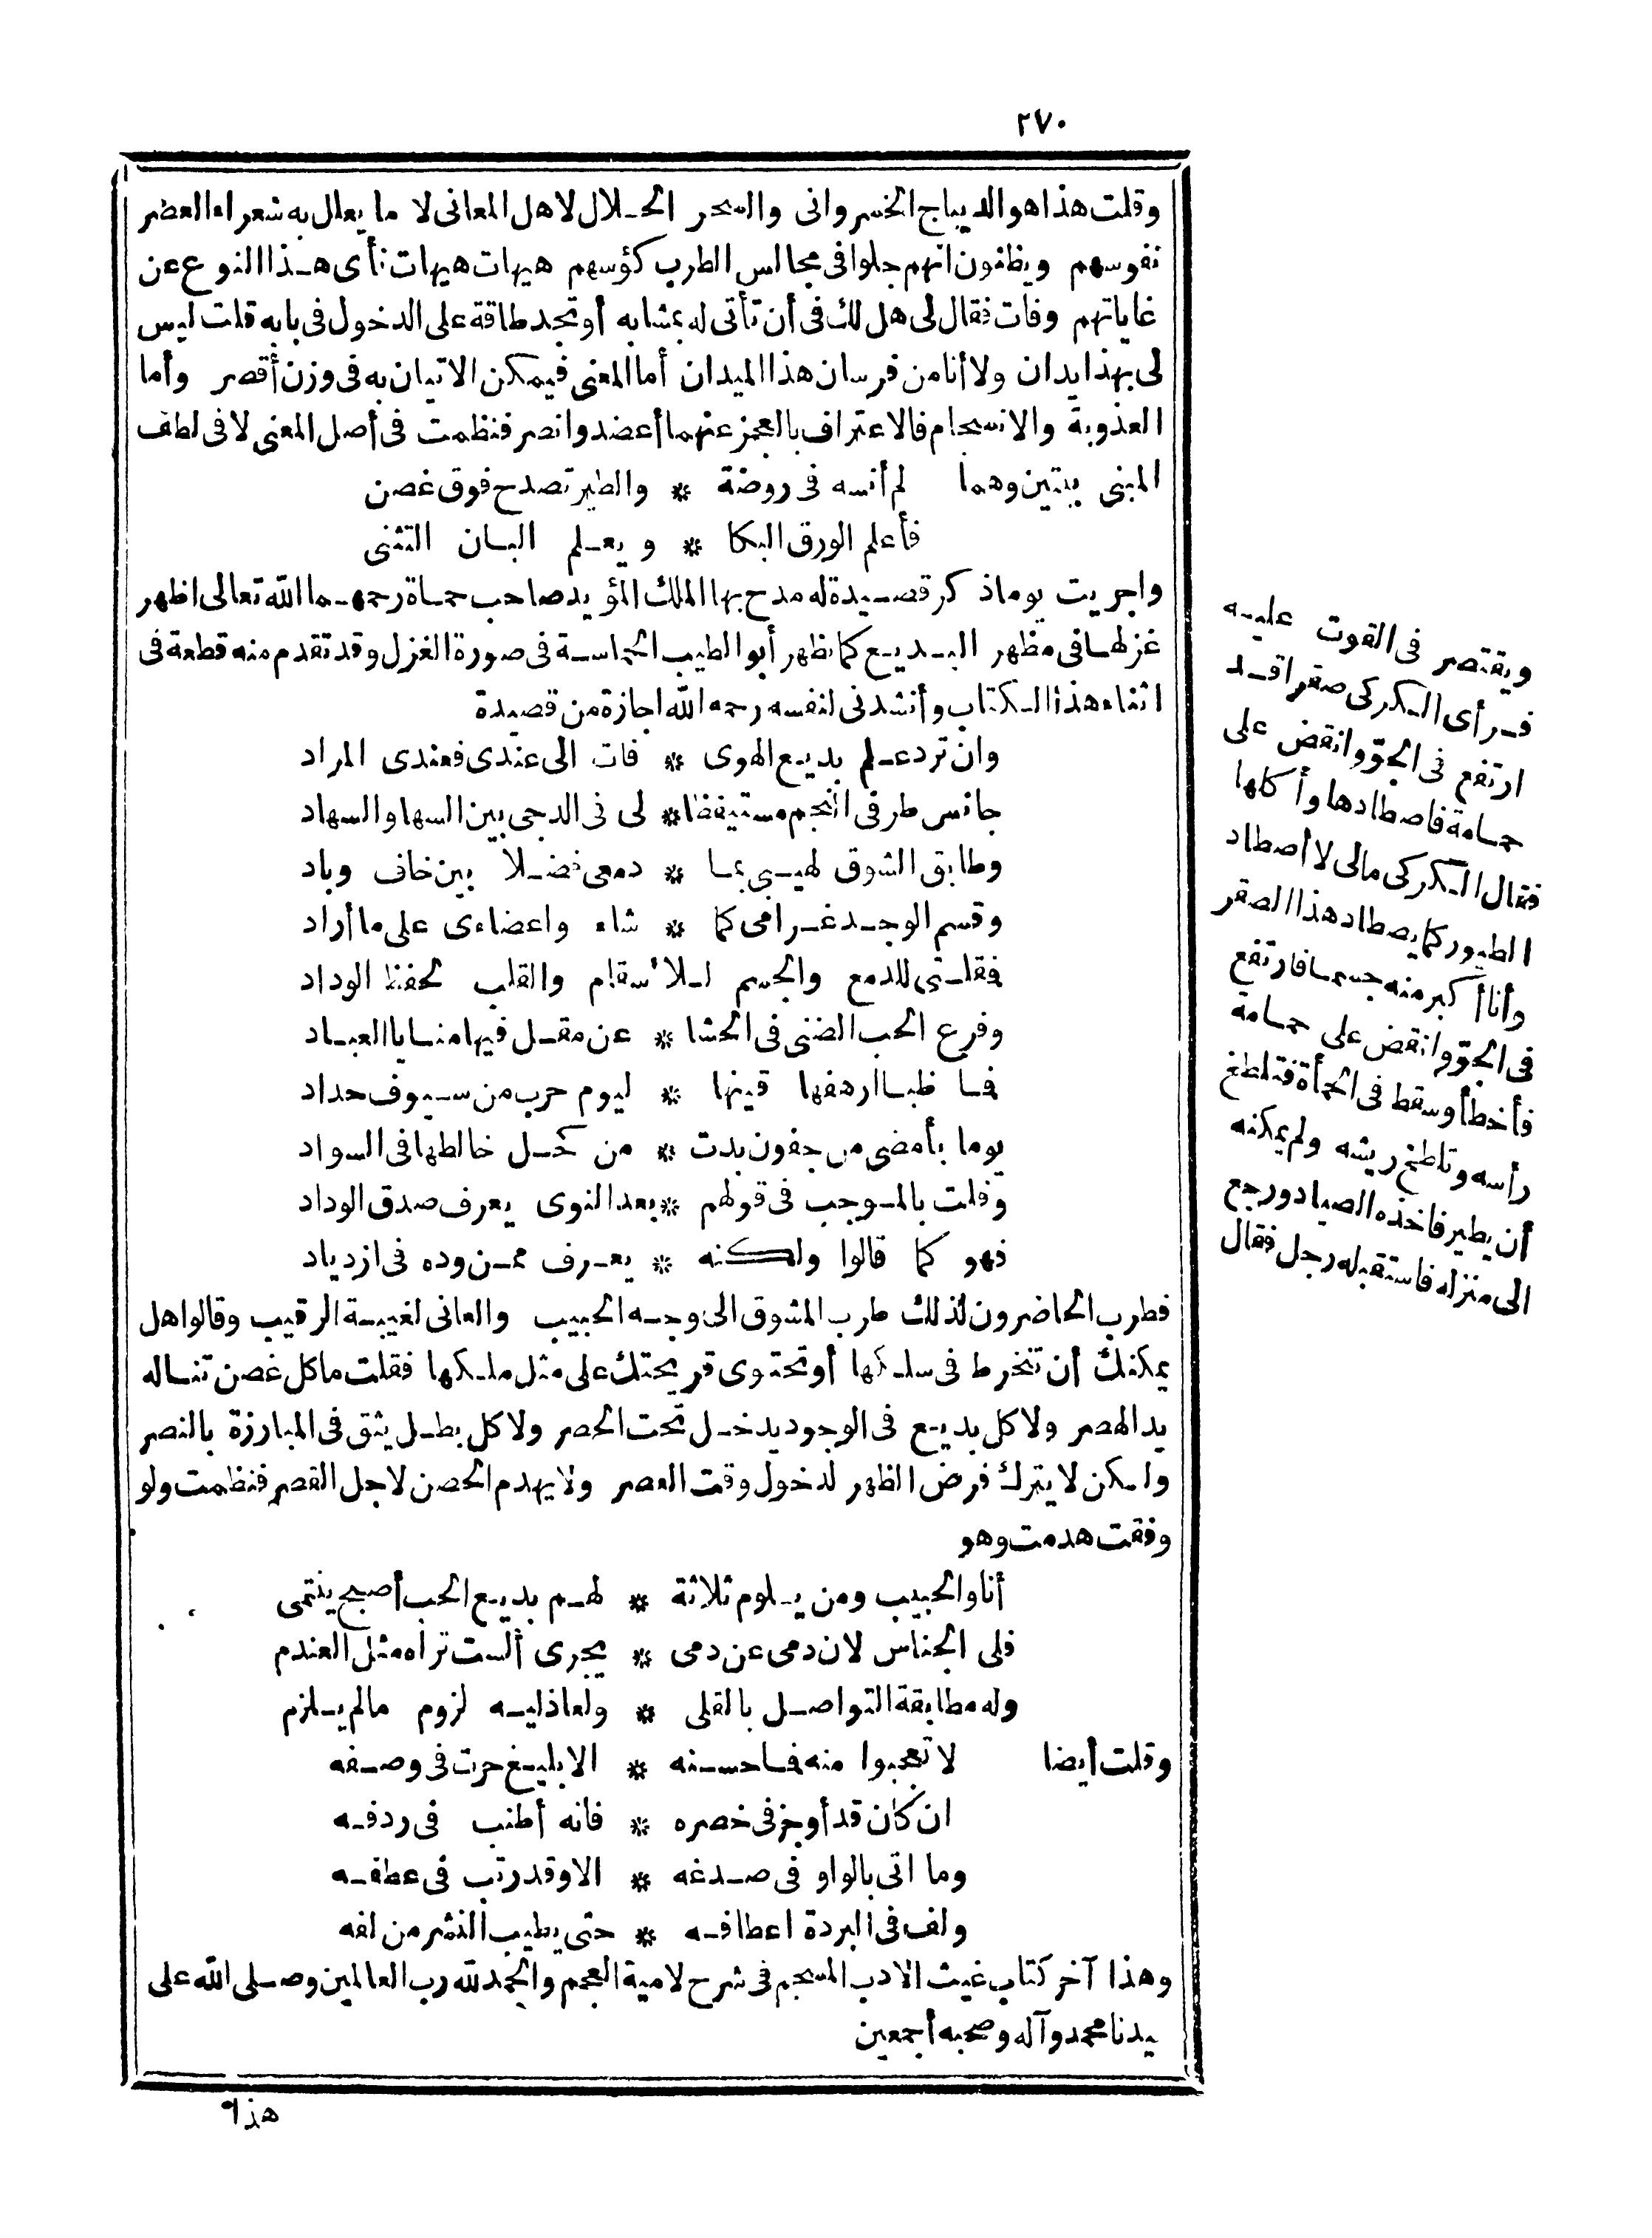 ٢٧٠
وقلت هذا هو الديباج الخسرواني والسحر الحلال لاهل المعانى لا ما يعلل به شعراء العصر
نفوسهم ويظنون انهم جلوا فى مجالس الطرب كؤسهم هيهات هيهات نأى هذا النوع عن
غاياتهم وفات فقال لى هل لك فى أن تأتى له بمشابه أو تجد طاقة على الدخول فى بابه قلت ليس
لى بهذا يدان ولا أنا من فرسان هذا الميدان أما المعنى فيمكن الاتيان به فى وزن أقصر وأما
العذوبة والانسجام فالاعتراف بالعجز عنهما أعضد وانصر فنظمت فى أصل المعنى لا فى لطف
المبنى بيتين وهما لم أنسه فى روضة * والطير تصدح فوق غصن
فأعلم الورق البكا * ويعلم البان التثنى
واجريت يوما ذكر قصيدة له مدح بها الملك المؤيد صاحب حماة رحمهما الله تعالى اظهر
غزلها فى مظهر البديع كما يظهر أبو الطيب الحماسة فى صورة الغزل وقد تقدم منه قطعة فى
اثناء هذا الكتاب وأنشدنى لنفسه رحمه الله اجازة من قصيدة
وان ترد علم بديع الهوى * فات الى عندى فعندى المراد
جانس طرفى النجم مستيقظا * لى فى الدجى بين السها والسهاد
وطابق الشوق لهيبى بما * دمعى فضلا بين خاف وباد
وقسم الوجد غرامى كما * شاء واعضاءى على ما أراد
فقلتى للدمع والجسم للأسقام والقلب لحفظ الوداد
وفرع الحب الضنى فى الحشا * عن مقل فيها منايا العباد
فما ظبا ارهفها قينها * ليوم حرب من سيوف حداد
يوما بأمضى من جفون بدت * من كحل خالطها فى السواد
وقلت بالموجب فى قولهم * بعد النوى يعرف صدق الوداد
فهو كما قالوا ولكنه * يعرف ممن وده فى ازدياد
فطرب الحاضرون لذلك طرب المشوق الى وجه الحبيب والعانى لغيبة الرقيب وقالوا هل
يمكنك أن تنخرط فى سلكها أو تحتوى قريحتك على مثل ملكها فقلت ما كل غصن تناله
يد الهصر ولا كل بديع فى الوجود يدخل تحت الحصر ولا كل بطل يثق فى المبارزة بالنصر
ولكن لا يترك فرض الظهر لدخول وقت العصر ولا يهدم الحصن لاجل القصر فنظمت ولو
وفقت هدمت وهو
أنا والحبيب ومن يلوم ثلاثة * لهم بديع الحب أصبح ينتمى
فلى الجناس لان دمى عن دمى * يجرى ألست تراه مثل العندم
وله مطابقة التواصل بالقلى * ولعاذليه لزوم مالم يلزم
وقلت أيضا لا تعجبوا منه فما حسنه * الا بليغ حرت فى وصفه
ان كان قد أوجز فى خصره * فانه أطنب فى ردفه
وما اتى بالواو فى صدغه * الا وقد رتب فى عطفه
ولف فى البردة اعطافه * حتى يطيب النشر من لفه
وهذا آخر كتاب غيث الادب المسجم فى شرح لامية العجم والحمد لله رب العالمين وصلى الله على
يدنا محمد وآله وصحبه أجمعين
هذا
ويقتصر فى القوت عليه
فرأى الكركى صقرا قد
ارتفع فى الجوّ وانقض على
حمامة فاصطادها وأكلها
فقال الكركى مالى لا أصطاد
الطيور كما يصطاد هذا الصقر
وأنا أكبر منه جسما فارتفع
فى الجوّ وانقض على حمامة
فأخطأ وسقط فى الحمأة فتلطخ
رأسه وتلطخ ريشه ولم يمكنه
أن يطير فاخذه الصياد ورجع
الى منزله فاستقبله رجل فقال